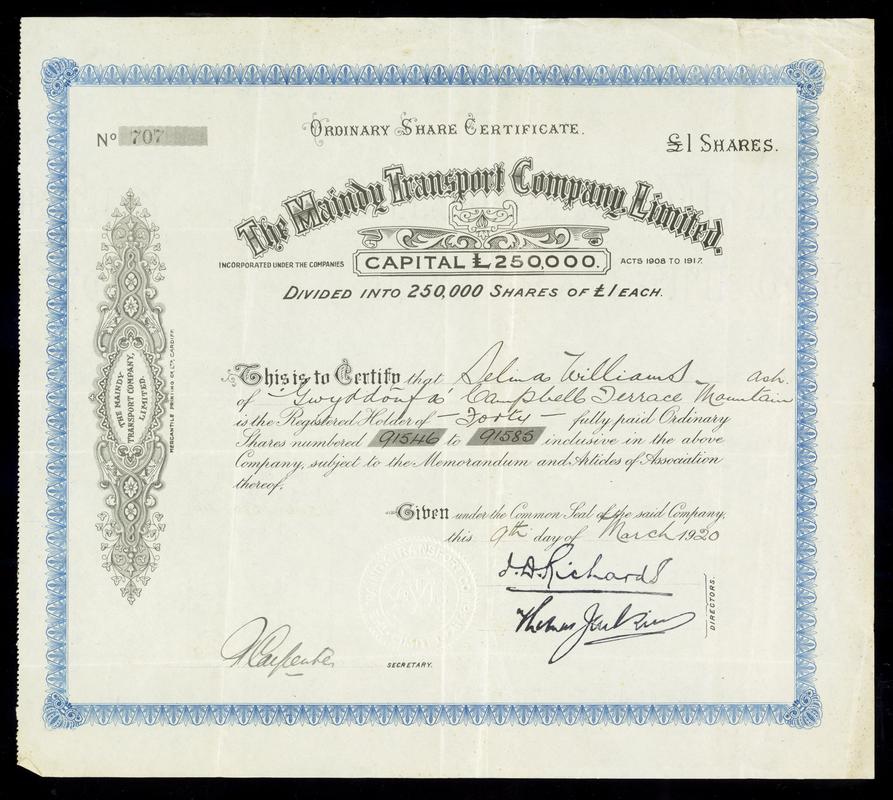 Nº 707
ORDINARY SHARE CERTIFICATE.
£1 SHARES.
The Maindy Transport Company, Limited.
INCORPORATED UNDER THE COMPANIES
CAPITAL £250,000.
ACTS 1908 TO 1917.
DIVIDED INTO 250,000 SHARES OF £1 EACH.
THE MAINDY
TRANSPORT COMPANY,
LIMITED.
MERCANTILE PRINTING Co LTD. CARDIFF.
This is to Certify that Selina Williams
of "Gwyddonfa" Campbell Terrace Mountain Ash.
is the Registered Holder of - Forty - fully paid Ordinary
Shares numbered 91546 to 91585 inclusive in the above
Company, subject to the Memorandum and Articles of Association
thereof.
Given under the Common Seal of the said Company,
this 9th day of March 1920
J. D. Richards
Thomas Jenkins
DIRECTORS.
Carpenter
SECRETARY.